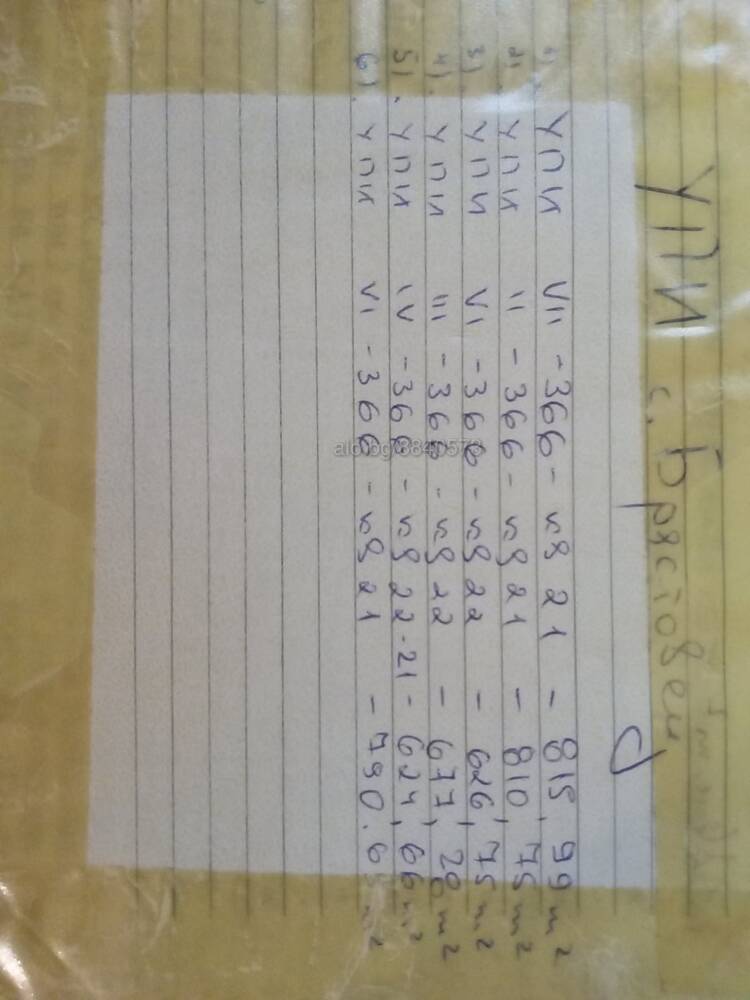 УПИ с. Брястовец
1). УПИ VII - 366 - кв 21 - 815,99 m²
2). УПИ II - 366 - кв 21 - 810,75 m²
3). УПИ VI - 366 - кв 22 - 626,75 m²
4). УПИ III - 366 - кв 22 - 677,20 m²
5). УПИ IV - 366 - кв 22-21 - 624,66 m²
6). УПИ VI - 366 - кв 21 - 790.65 m²
alo.bg/8840573